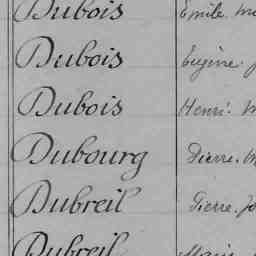 Dubois Emile.
Dubois Eugène.
Dubois Henri.
Dubourg Pierre.
Dubreil Pierre.
Dubreil Marie